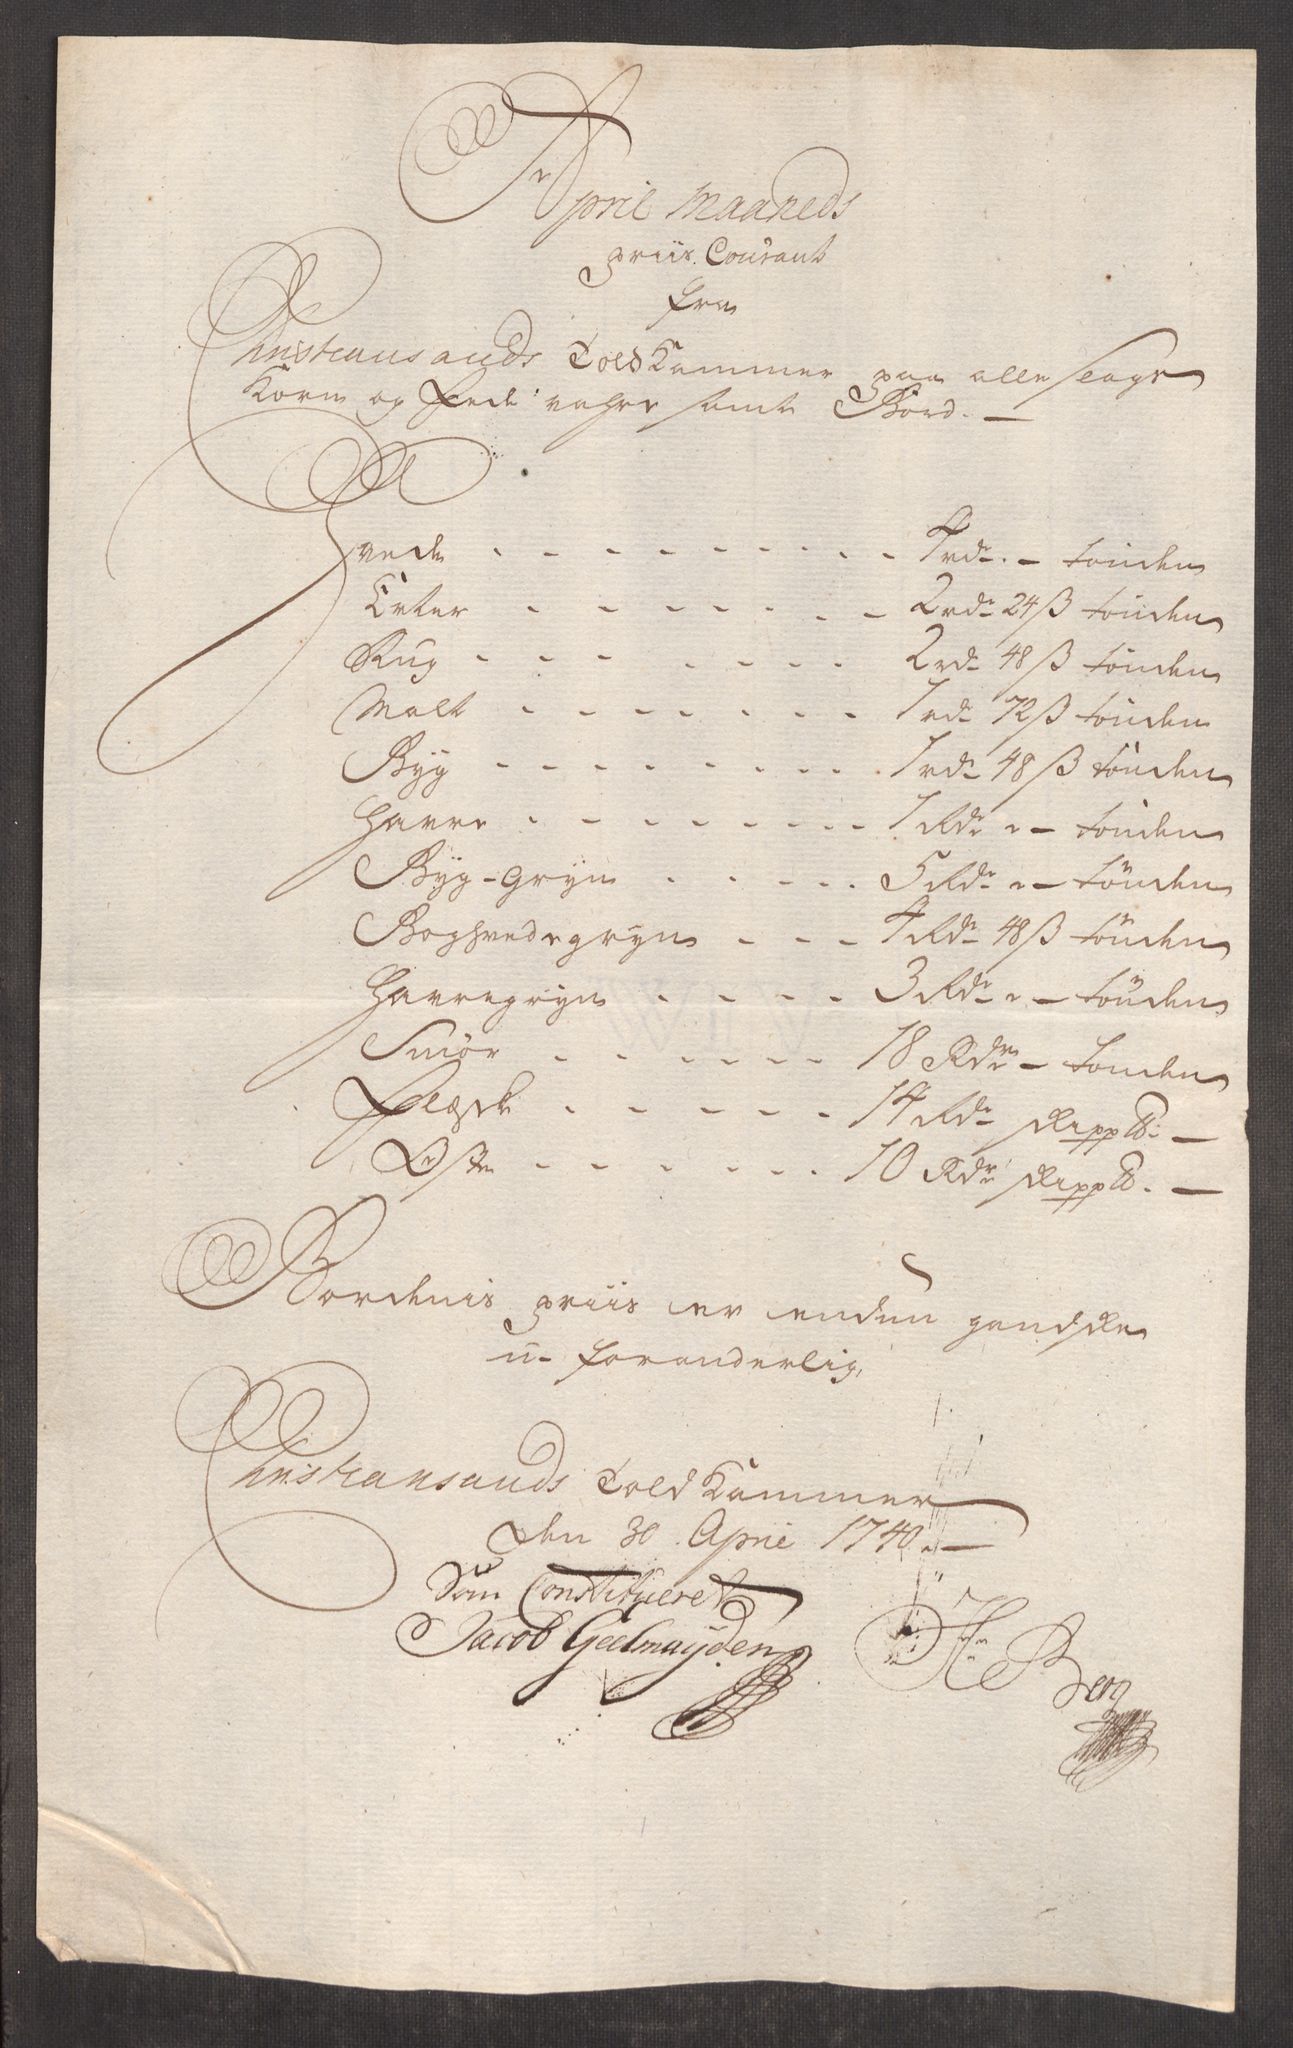 April Maaneds
priis Courant
fra
Christiansands Told Kammer paa alle slags
Korn og fede vahre samt Bord. —
Hvede - - - - - - - - - 4 rdr. - tønden
Erter - - - - - - - 2 rdr 24 ß tønden
Rug - - - - - - - 2 rdr 48 ß tønden
Malt - - - - - - - 1 rdr 72 ß tønden
Byg - - - - - - - - 1 rdr 48 ß tønden
Havre - - - - - - - - 1 Rdr " - tønden
Byg-Gryn - - - - - 5 Rdr " - tønden
Boghvedegryn - - - 4 Rdr 48 ß tønden
Havregryn - - - - 3 Rdr " - tønden
Smør - - - - - - 18 Rdr - tønden
Flæsk - - - - - 14 Rdr skipp℔. —
Oste - - - - - - 10 Rdr skipp℔. —
Bordenis priis er endnu gandske
u-foranderlig,
Christiansands Told Kammer
den 30 April 1740. —
Som Constitueret
Jacob Geelmuyden H Berg